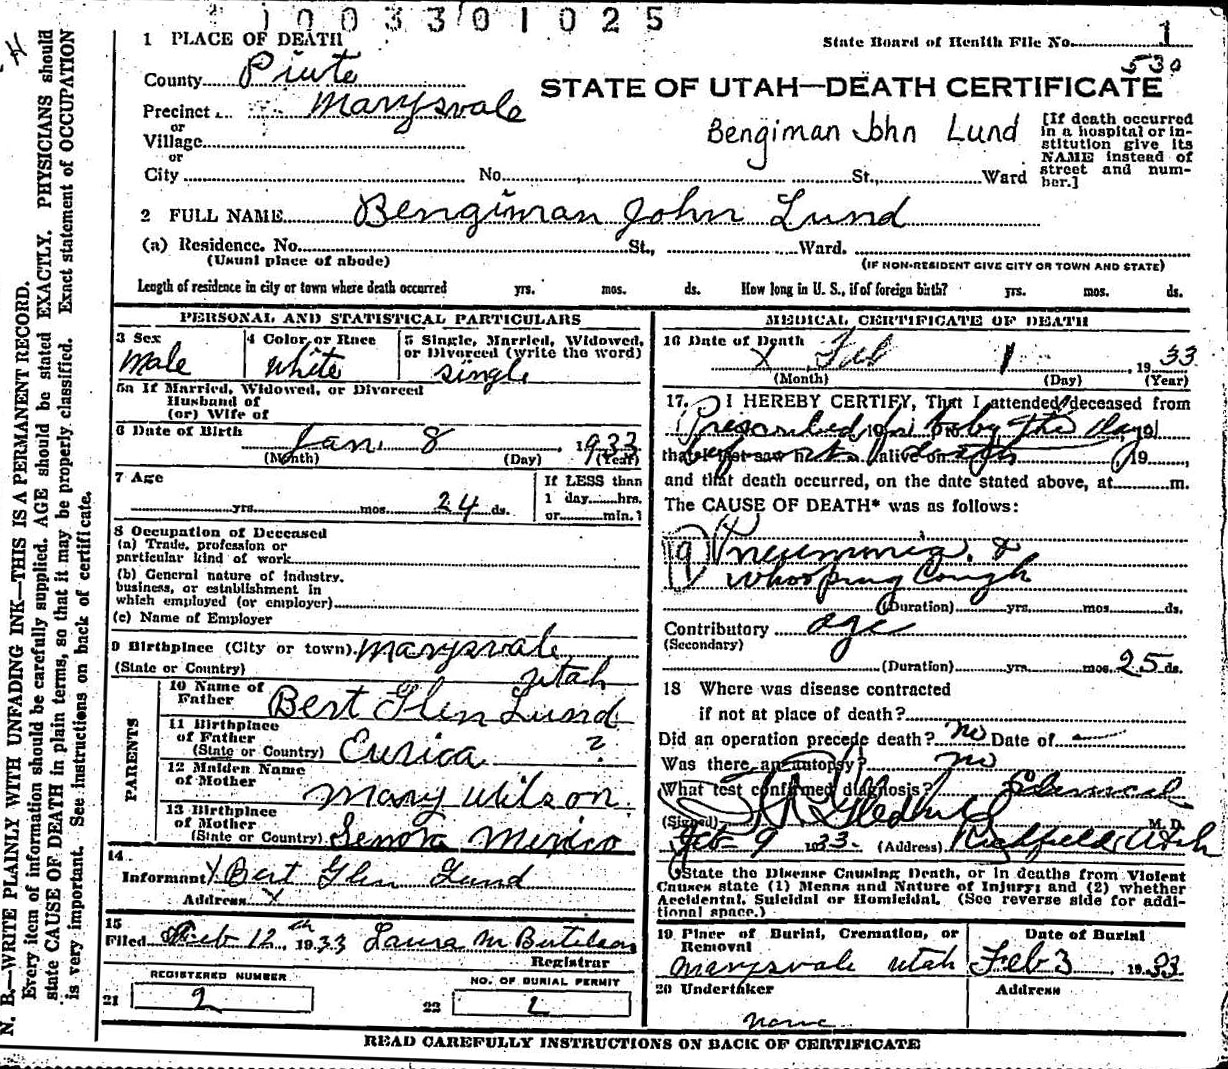 1003301025
1 PLACE OF DEATH
State Board of Health File No. 1
530
County Piute
STATE OF UTAH—DEATH CERTIFICATE
Precinct Marysvale
or
Village
or
City No. St., Ward
Bengiman John Lund
[If death occurred
in a hospital or in-
stitution give its
NAME instead of
street and num-
ber.]
2 FULL NAME Bengiman John Lund
(a) Residence. No. St., Ward.
(Usual place of abode) (IF NON-RESIDENT GIVE CITY OR TOWN AND STATE)
Length of residence in city or town where death occurred yrs. mos. ds. How long in U. S., if of foreign birth? yrs. mos. ds.
PERSONAL AND STATISTICAL PARTICULARS
3 Sex
Male
4 Color or Race
White
5 Single, Married, Widowed,
or Divorced (write the word)
single
5a If Married, Widowed, or Divorced
Husband of
(or) Wife of
6 Date of Birth Jan 8 1933
(Month) (Day) (Year)
7 Age
yrs. mos. 24 ds.
If LESS than
1 day hrs.
or min.1
8 Occupation of Deceased
(a) Trade, profession or
particular kind of work
(b) General nature of industry.
business, or establishment in
which employed (or employer)
(c) Name of Employer
9 Birthplace (City or town). Marysvale
(State or Country) Utah
PARENTS
10 Name of
Father Bert Glen Lund
11 Birthplace
of Father
(State or Country) Eurica ?
12 Maiden Name
of Mother Mary Wilson
13 Birthplace
of Mother
(State or Country) Senora Mexico
14
Informant X Bert Glen Lund
Address X
15
Filed Feb 12th 1933 Laura M Bertelson
Registrar
REGISTERED NUMBER
21 2
NO. OF BURIAL PERMIT
22 2
MEDICAL CERTIFICATE OF DEATH
16 Date of Death
X Feb 1, 1933
(Month) (Day) (Year)
17. I HEREBY CERTIFY, That I attended deceased from
Prescribed for baby the day
before death
that I last saw h alive on , 19
and that death occurred, on the date stated above, at m.
The CAUSE OF DEATH* was as follows:
9 Pneumonia &
Whooping Cough
(Duration) yrs. mos. ds.
Contributory age
(Secondary)
(Duration) yrs. mos. 25 ds.
18 Where was disease contracted
if not at place of death?
Did an operation precede death? no Date of —
Was there an autopsy? no
What test confirmed diagnosis? Clinical
(Signed) Gledhill M. D.
Feb 9 1933. (Address) Richfield Utah
*State the Disease Causing Death, or in deaths from Violent
Causes state (1) Means and Nature of Injury; and (2) whether
Accidental, Suicidal or Homicidal. (See reverse side for addi-
tional space.)
19 Place of Burial, Cremation, or
Removal
Marysvale Utah
Date of Burial
Feb 3 1933
20 Undertaker
none
Address
READ CAREFULLY INSTRUCTIONS ON BACK OF CERTIFICATE
N. B.—WRITE PLAINLY WITH UNFADING INK—THIS IS A PERMANENT RECORD.
Every item of information should be carefully supplied. AGE should be stated EXACTLY. PHYSICIANS should
state CAUSE OF DEATH in plain terms, so that it may be properly classified. Exact statement of OCCUPATION
is very important. See instructions on back of certificate.